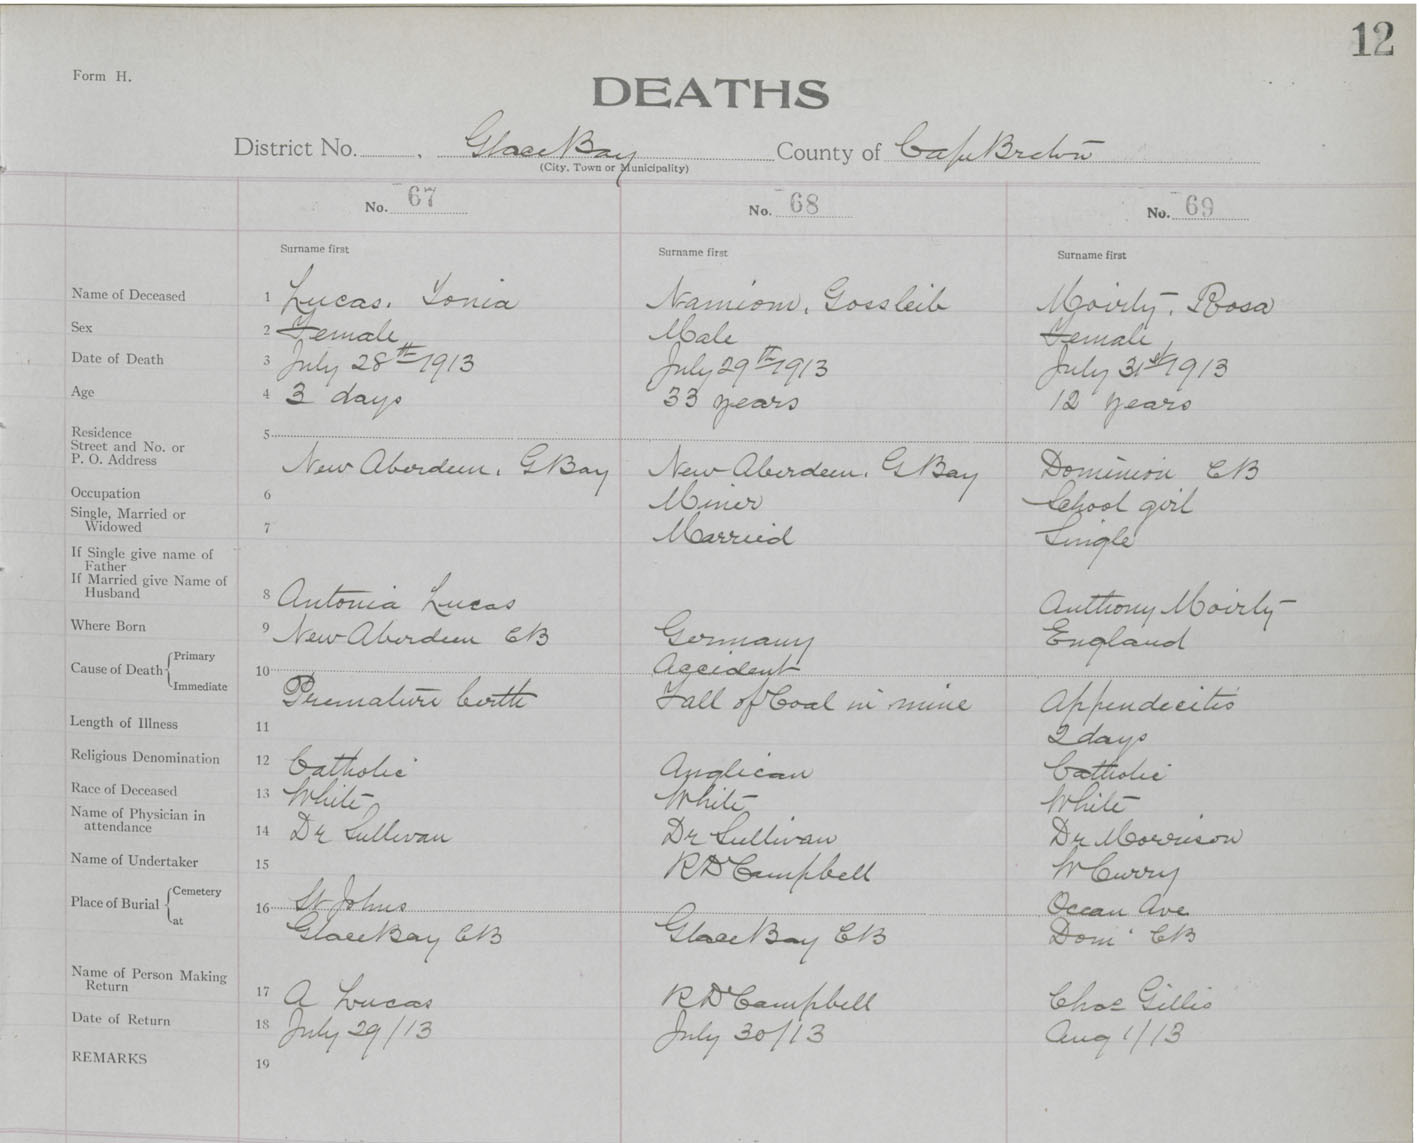 12
Form H.
DEATHS
District No. Glace Bay County of Cape Breton
(City, Town or Municipality)
No. 67 No. 68 No. 69
Surname first Surname first Surname first
Name of Deceased 1 Lucas, Sonia Namiom, Gossleib Moirty, Rosa
Sex 2 Female Male Female
Date of Death 3 July 28th 1913 July 29th 1913 July 31st 1913
Age 4 3 days 33 years 12 years
Residence 5
Street and No. or
P. O. Address New Aberdeen, G Bay New Aberdeen, G Bay Dominion CB
Occupation 6 Miner School girl
Single, Married or
Widowed 7 Married Single
If Single give name of
Father
If Married give Name of
Husband 8 Antonia Lucas Anthony Moirty
Where Born 9 New Aberdeen CB Germany England
Cause of Death Primary 10 Accident
Immediate Premature birth Fall of Coal in mine Appendecitis
Length of Illness 11 2 days
Religious Denomination 12 Catholic Anglican Catholic
Race of Deceased 13 White White White
Name of Physician in
attendance 14 Dr Sullivan Dr Sullivan Dr Morrison
Name of Undertaker 15 R D Campbell W Curry
Place of Burial Cemetery 16 St Johns Ocean Ave
at Glace Bay CB Glace Bay CB Dom CB
Name of Person Making
Return 17 A Lucas R D Campbell Chas Gillis
Date of Return 18 July 29/13 July 30/13 Aug 1/13
REMARKS 19